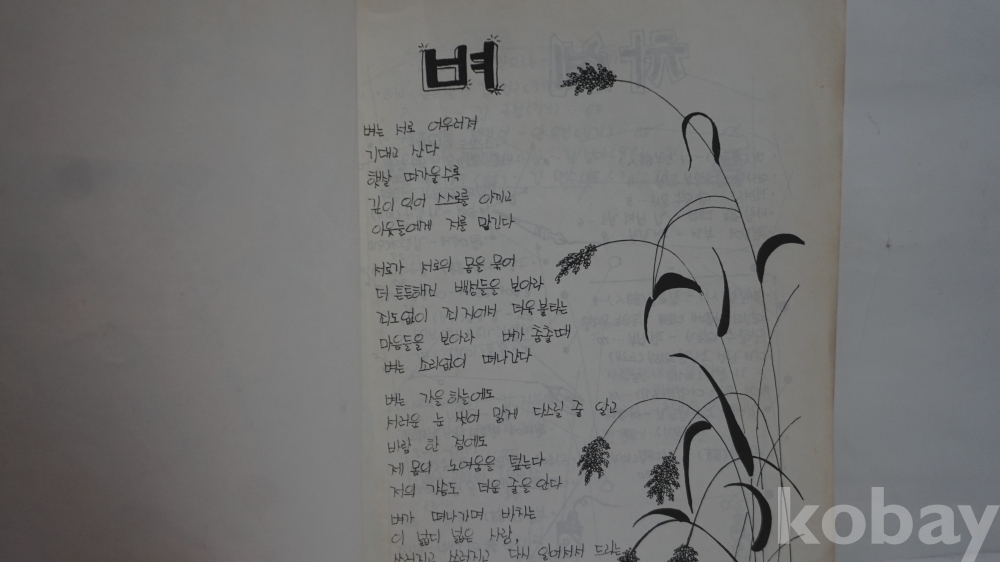 벼
벼는 서로 어우러져
기대고 산다
햇살 따가울수록
깊이 익어 스스로를 아끼고
이웃들에게 저를 맡긴다
서로가 서로의 몸을 묶어
더 튼튼해진 백성들을 보아라
죄도없이 죄지어서 더욱불타는
마음들을 보아라 벼가 춤출때
벼는 소리없이 떠나간다
벼는 가을하늘에도
서러운 눈 씻어 맑게 다스릴 줄 알고
바람 한 점에도
제 몸의 노여움을 덮는다
저의 가슴도 더운 줄을안다
벼가 떠나가며 바치는
이 넓디 넓은 사랑,
쓰러지고 쓰러지고 다시 일어서서 드리는
kobay